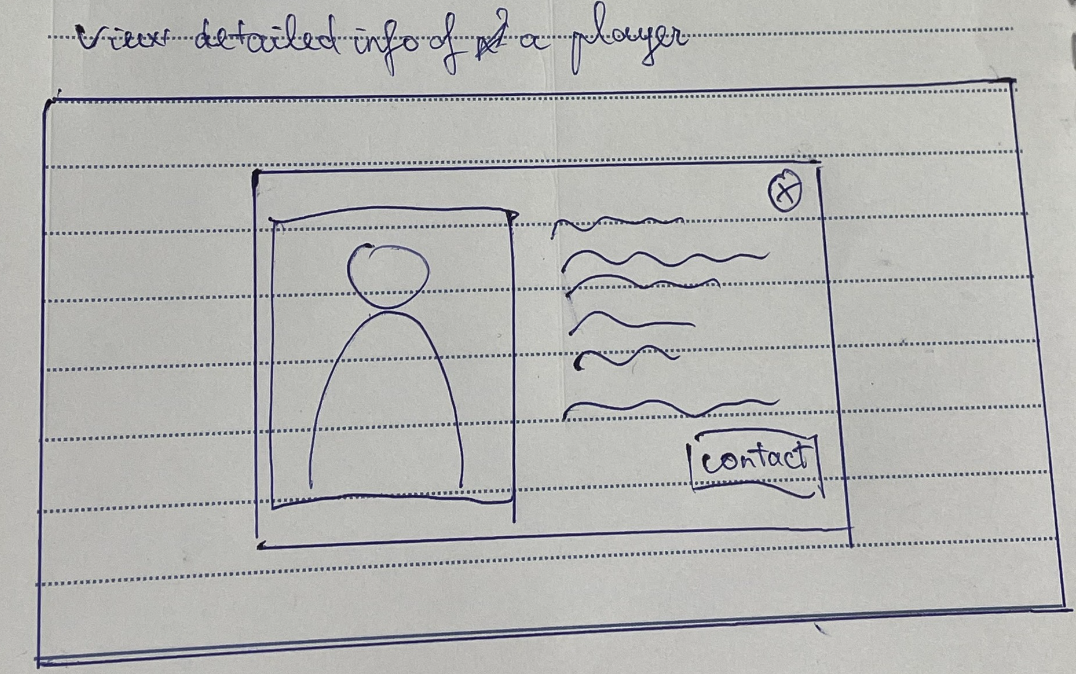 view detailed info of a player
X
contact